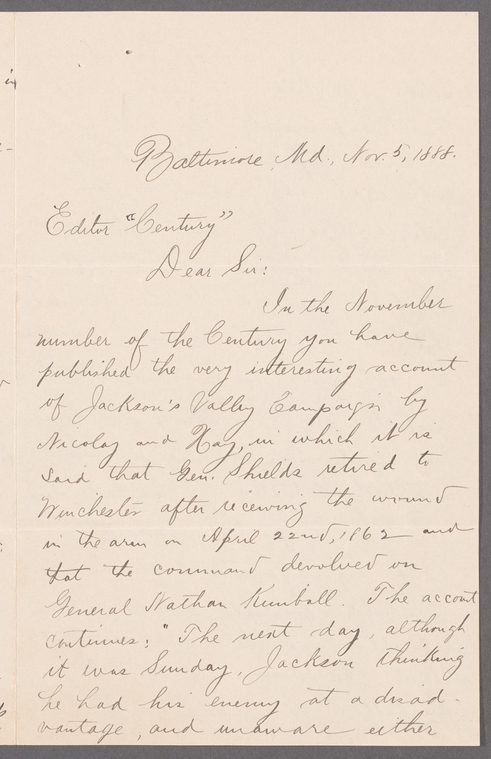 Baltimore, Md., Nov. 5, 1888.
Editor "Century"
Dear Sir:
In the November
number of the Century you have
published the very interesting account
of Jackson's Valley Campaign by
Nicolay and Hay, in which it is
said that Gen. Shields retired to
Winchester after receiving the wound
in the arm on April 22nd, 1862 and
that the command devolved on
General Nathan Kimball. The account
continues: "The next day, although
it was Sunday, Jackson thinking
he had his enemy at a disad-
vantage, and unaware either